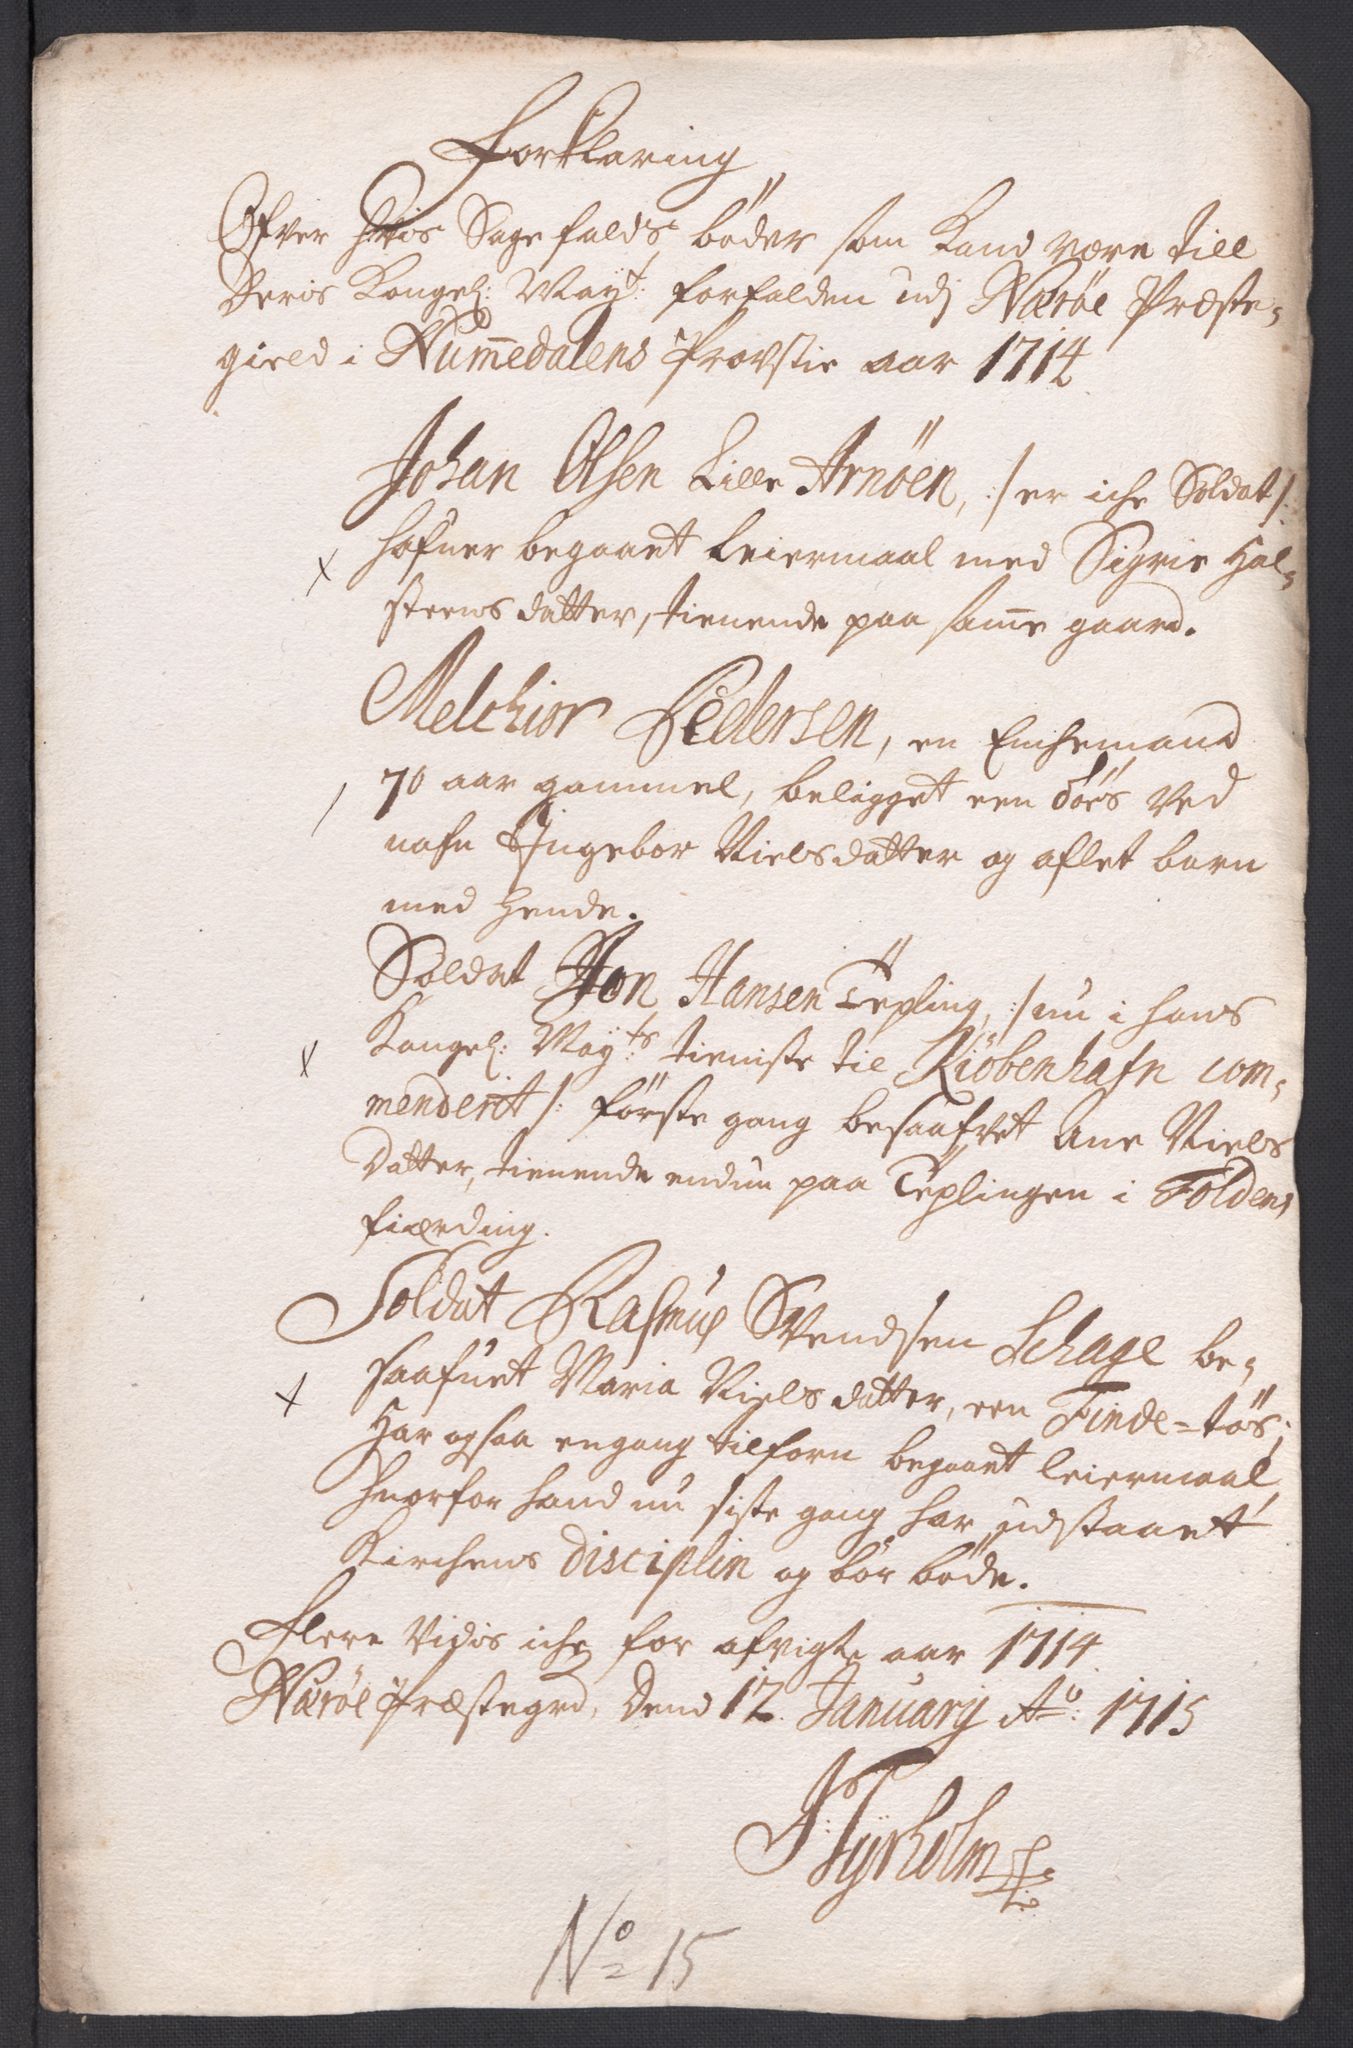 Forklaring
Ofver hvis Sagefalds bøder som Kand være till
Deris Kongel: May:t forfalden udj Nærøe Præste-
gield i Nummedalens Provstie aar 1714
Johan Olsen Lille Arnöen, :/ er iche Soldat /:
x hafuer begaaet Leiermaal med Sigrie Hal-
steens datter, tienende paa samme gaard.
Melchior Pedersen, en Enchemand
/ 70 aar gammel, beligget een töes ved
nafn Ingebor Nielsdatter og aflet barn
med hende.
Soldat Jon Hansen Tepling, :/ nu i hans
x Kongel: May:ts tieniste til Kiöbenhafn com-
menderit /: förste gang besaafvet Ane Niels
Datter, tienende endnu paa Teplingen i Foldens
fiærding.
Soldat Rasmus Svendsen Schage be-
x saafuet Maria Nielsdatter, een Finde-tös;
Har ogsaa engang tilforn begaaet leiermaal,
hvorfor hand nu siste gang har udstaaet
Kirchens disciplin og bör böde.
Flere vidis iche for afvigte aar 1714.
Nærøe Præstegrd, Dend 12. January Ao: 1715
JS: Tyrholm
No 15